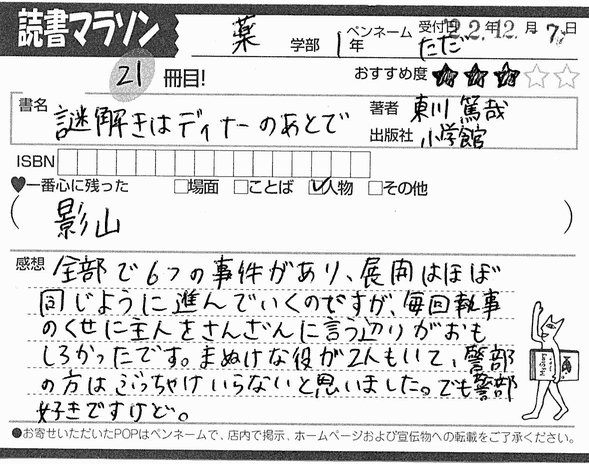 読書マラソン
薬 学部 1年 ペンネーム ただ 受付日 22年12月7日
21 冊目! おすすめ度 ★★★☆☆
書名 謎解きはディナーのあとで 著者 東川 篤哉
出版社 小学館
ISBN
♥一番心に残った □場面 □ことば ☑人物 □その他
(影山)
感想 全部で6つの事件があり、展開はほぼ
同じように進んでいくのですが、毎回執事
のくせに主人をさんざんに言う辺りがおも
しろかったです。まぬけな役が2人もいて、警部
の方はぶっちゃけいらないと思いました。でも警部
好きですけど。
●お寄せいただいたPOPはペンネームで、店内で掲示、ホームページおよび宣伝物への転載をご了承ください。